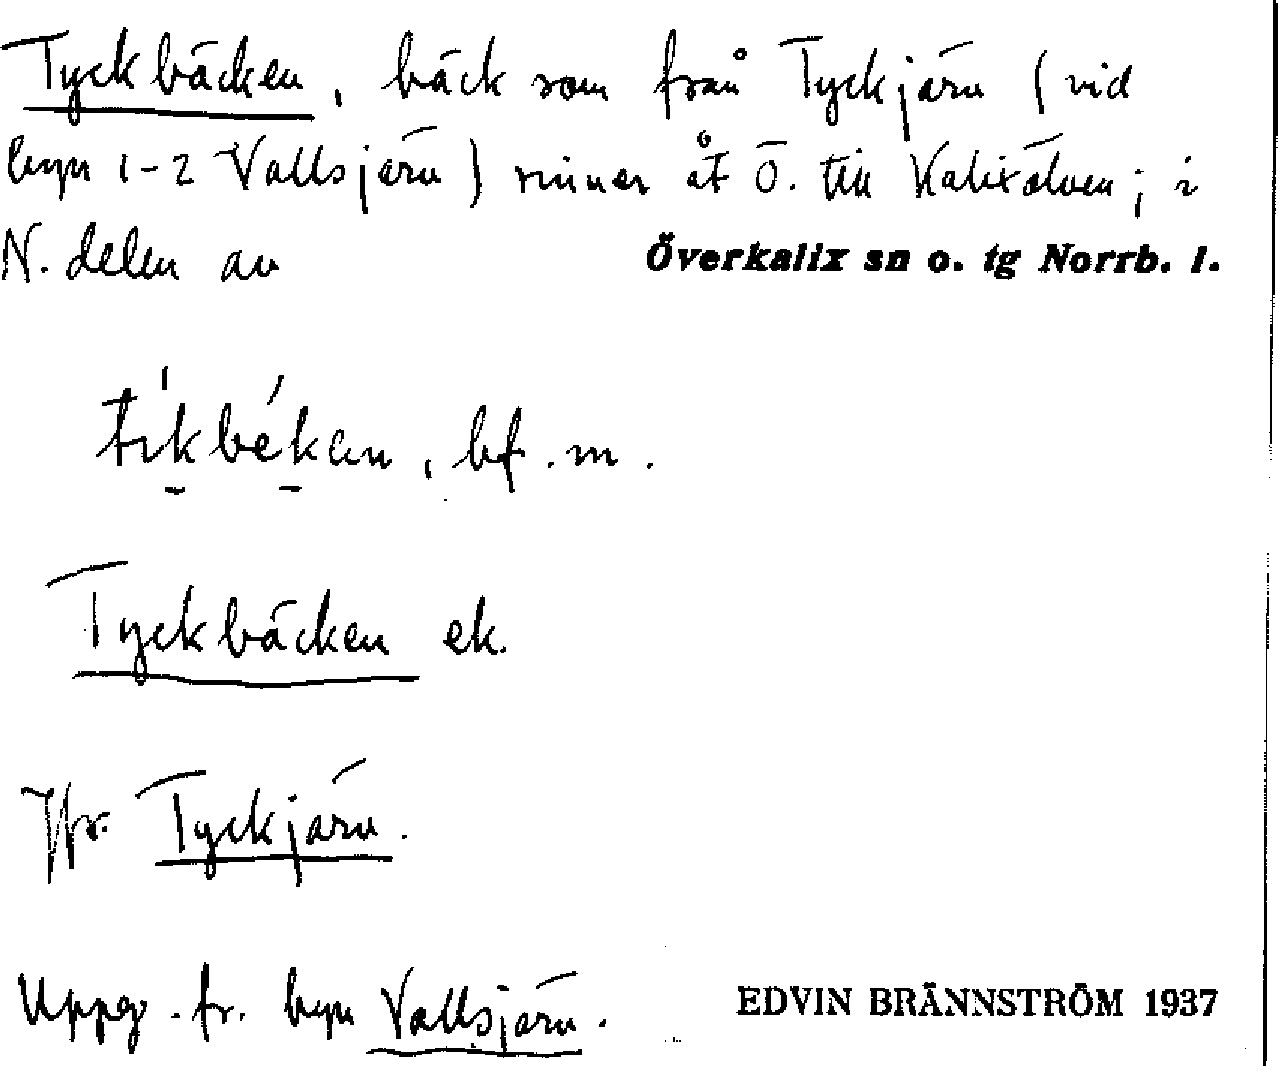 Tyckbäcken, bäck som från Tyckjärn (vid
byn 1-2 Vallsjärn) rinner åt Ö. till Kalixälven; i
N. delen av Överkalix sn o. tg Norrb. l.
tı́kbékan, bf. m.
Tyckbäcken ek.
Jfr. Tyckjärn.
Uppg. fr. byn Vallsjärn.
EDVIN BRÄNNSTRÖM 1937